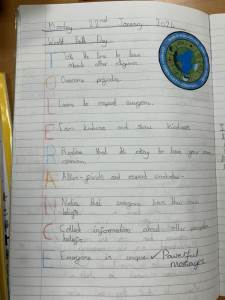 Monday 22nd January 2024
World Faith Day
T Take the time to learn
about other religions.
O Overcome prejudice.
L Learn to respect everyone.
E Earn kindness and show kindness
R Realise that it's okay to have your own
opinion.
A Allow friends and respect
N Notice that everyone has their own
beliefs.
C Collect information about other peoples
beliefs.
E Everyone is unique ✓ Powerful
messages